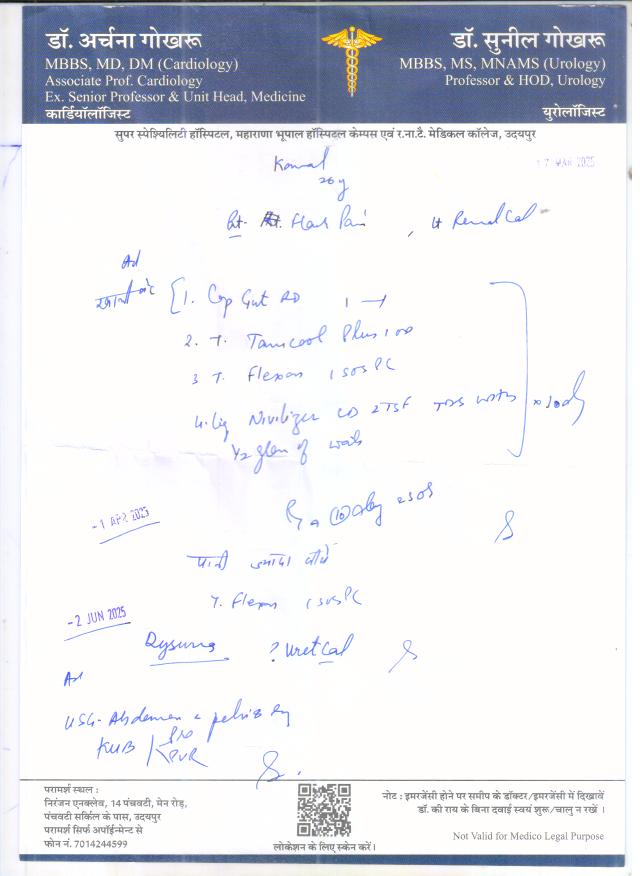 डॉ. अर्चना गोखरू
MBBS, MD, DM (Cardiology)
Associate Prof. Cardiology
Ex. Senior Professor & Unit Head, Medicine
कार्डियॉलॉजिस्ट
डॉ. सुनील गोखरू
MBBS, MS, MNAMS (Urology)
Professor & HOD, Urology
यूरोलॉजिस्ट
सुपर स्पेश्यिलिटी हॉस्पिटल, महाराणा भूपाल हॉस्पिटल केम्पस एवं र.ना.टै. मेडिकल कॉलेज, उदयपुर
Komal
17 MAR 2025
26y
Flank Pain, Lt Renal Cal
Ad
1. Cap Gut RD 1
2. T. Plus 100
3 T. Flexon 1 SOS PC
4. Liq 2 TSF TDS with
1/2 glass of water
x 10 day
-1 APR 2025
पानी ज्यादा पीवें
T. Flexon 1 SOS PC
-2 JUN 2025
Dysuria ? Uret Cal
Ad
USG - Abdomen & pelvis
KUB PVR
परामर्श स्थल :
निरंजन एनक्लेव, 14 पंचवटी, मेन रोड़,
पंचवटी सर्किल के पास, उदयपुर
परामर्श सिर्फ अपॉईन्मेन्ट से
फोन नं. 7014244599
लोकेशन के लिए स्केन करें।
नोट : इमरजेंसी होने पर समीप के डॉक्टर/इमरजेंसी में दिखावें
डॉ. की राय के बिना दवाई स्वयं शुरू/चालु न रखें ।
Not Valid for Medico Legal Purpose